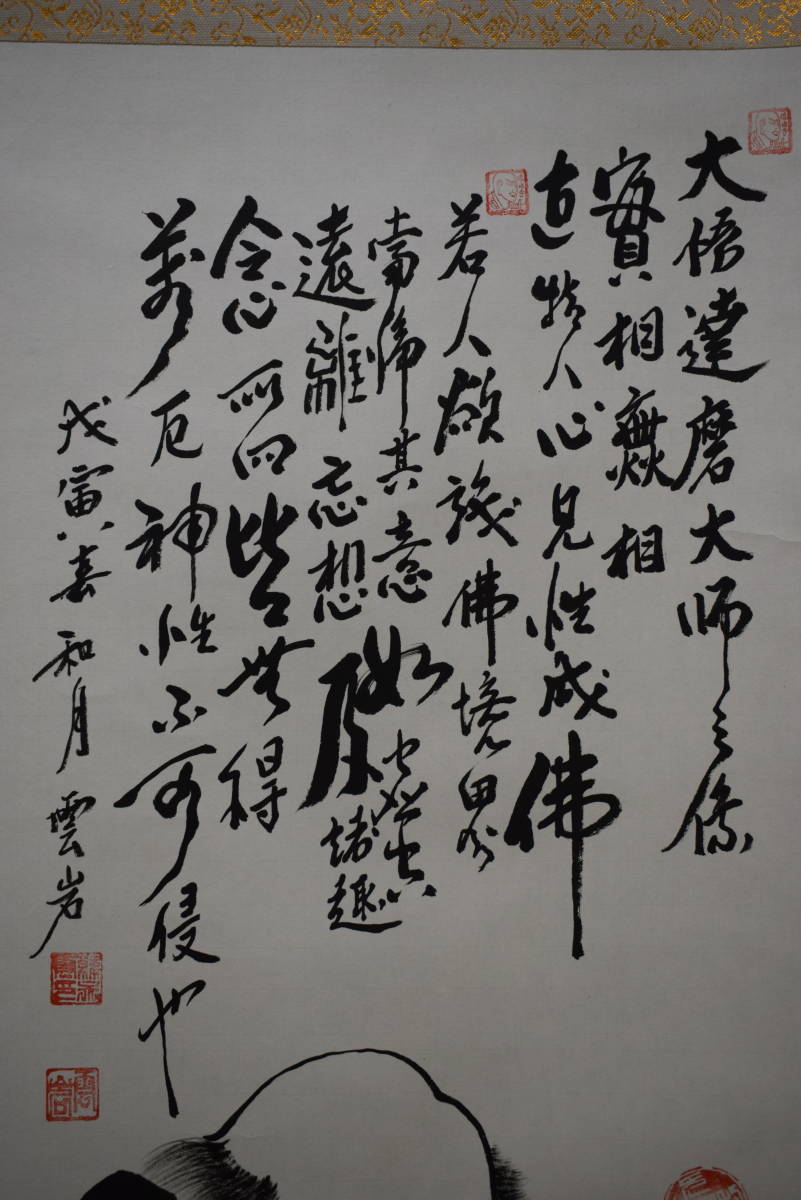 大悟達磨大师之像
實相無相
直指人心見性成佛
若人欲識佛境界
當淨其意如虛空
遠離忘想及諸趣
令心所向皆無得
萬厄神性不可侵也
戊寅嘉和月雲岩
雲岩